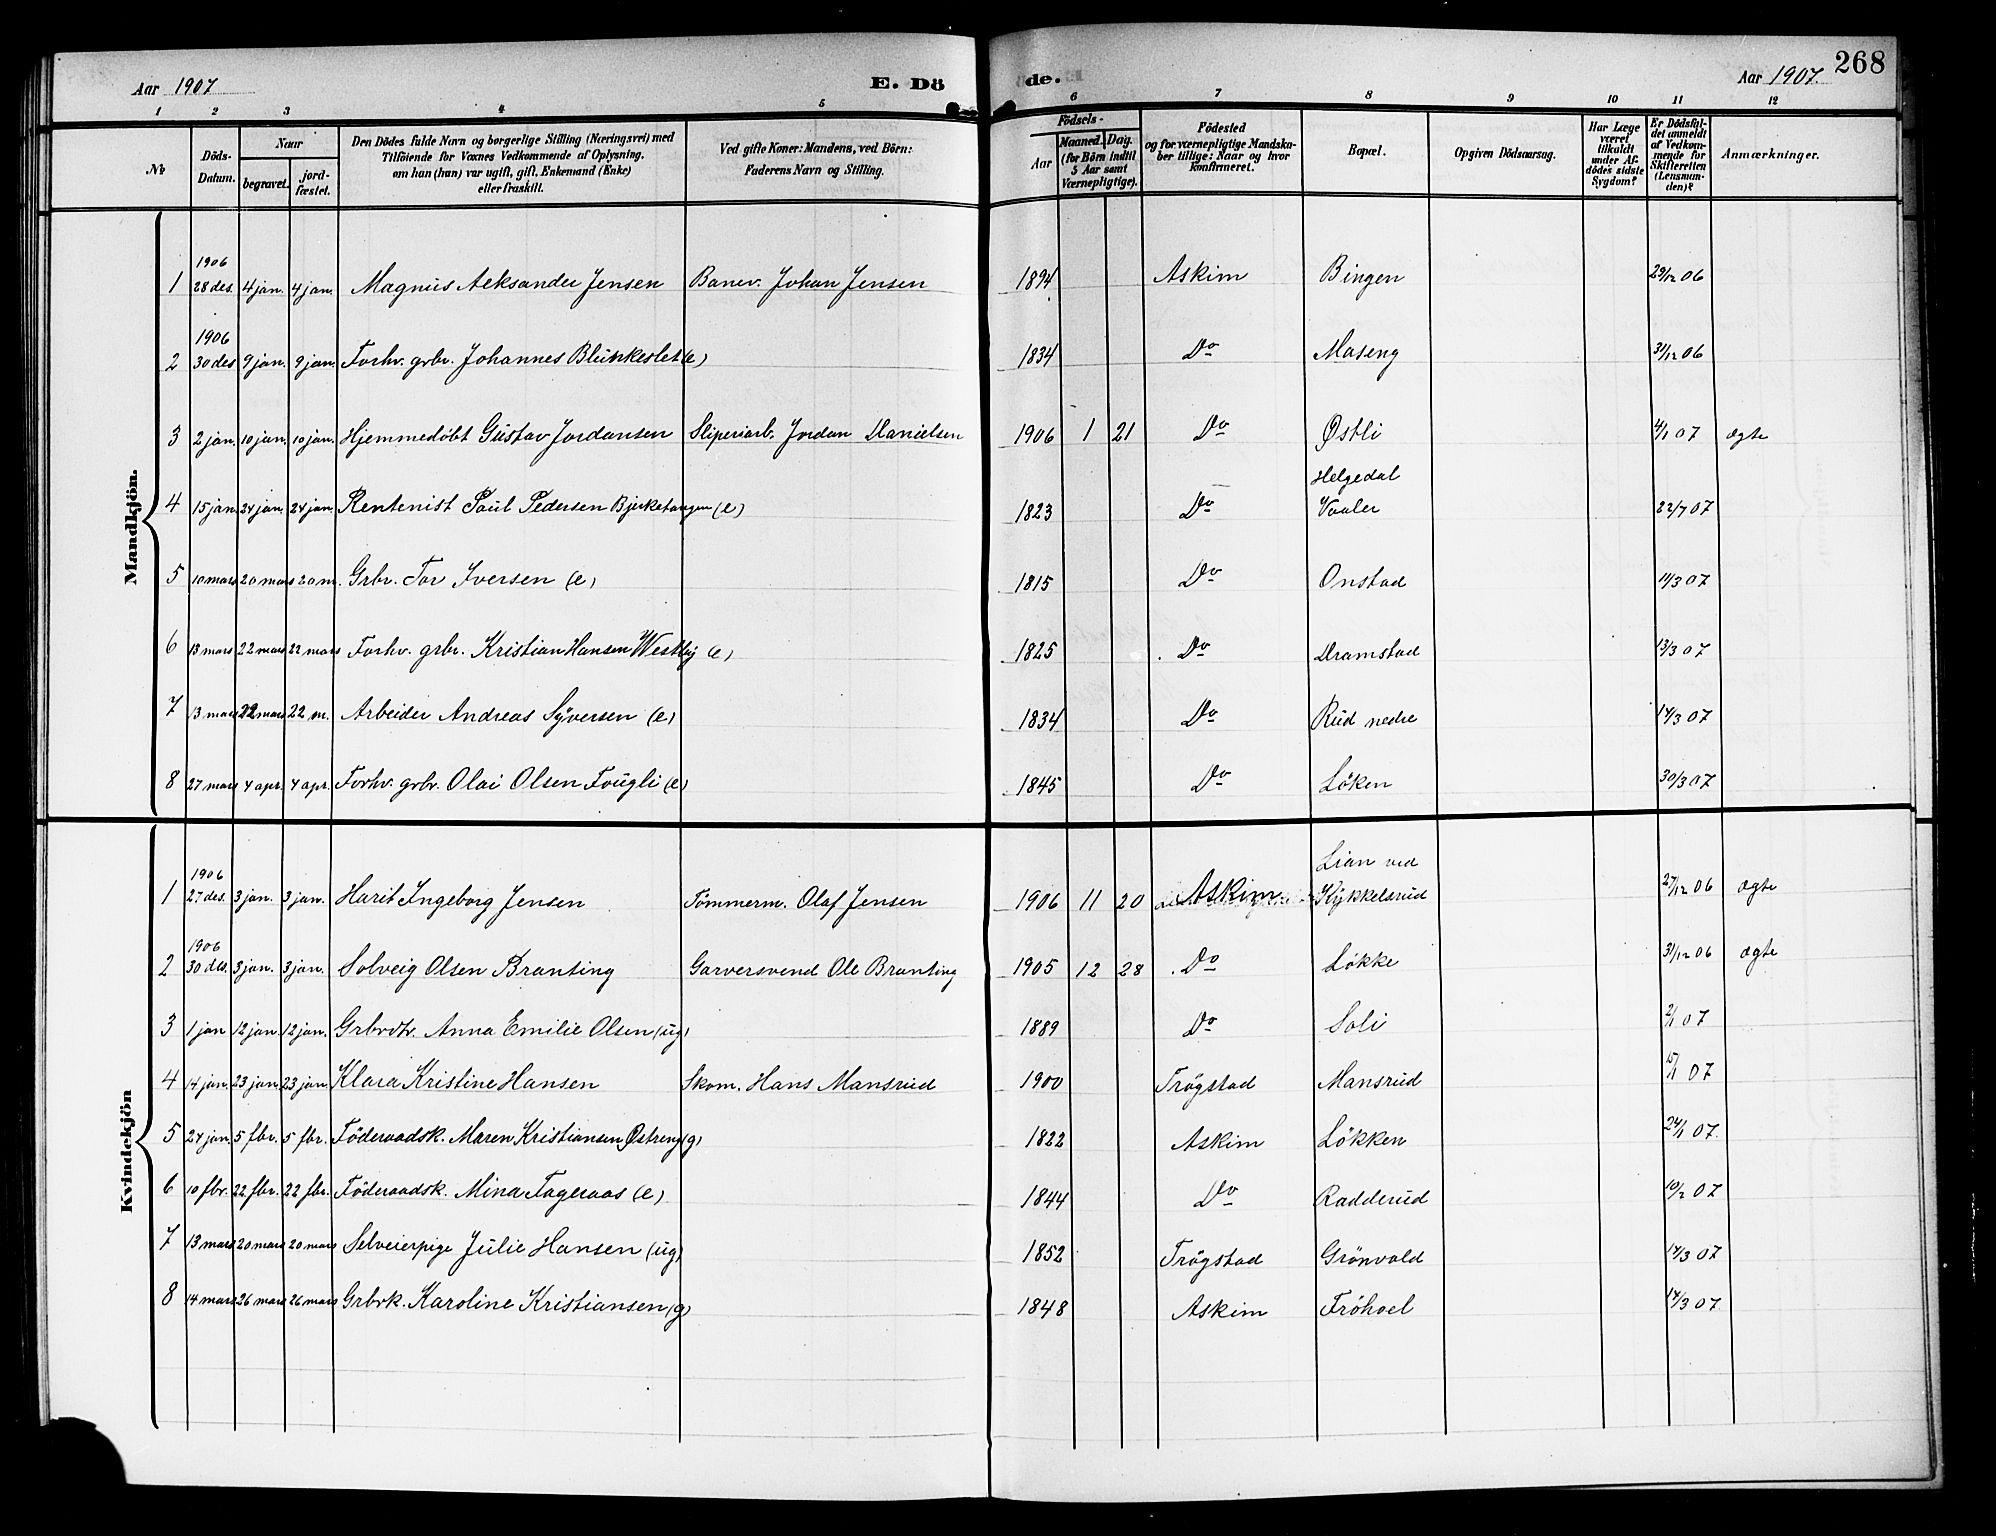 268
Aar 1907 E. Dö de. Aar 1907.
1 2 3 4 5 6 7 8 9 10 11 12
№ Döds-Datum. Naar begravet. jordfæstet. Den Dödes fulde Navn og borgerlige Stilling (Næringsvei) med Tilföiende for Voxnes Vedkommende af Oplysning, om han (hun) var ugift, gift, Enkemand (Enke) eller fraskilt. Ved gifte Koner: Mandens, ved Börn: Faderens Navn og Stilling. Födsels- Aar Maaned. Dag. (for Börn indtil 5 Aar samt Værnepligtige). Födested og for værnepligtige Mandskaber tillige: Naar og hvor konfirmeret. Bopæl. Opgiven Dödsaarsag. Har Læge været tilkaldt under Afdödes sidste Sygdom? Er Dödsfaldet anmeldt af Vedkommende for Skifteretten (Lensmanden)? Anmærkninger.
Mandkjön.
1 1906 28 des. 4 jan. 4 jan. Magnus Aeksander Jensen Banev. Johan Jensen 1894 Askim Bingen 29/12 06
2 1906 30 des 9 jan. 9 jan. Forhv. grbr. Johannes Blunkeslet (e) 1834 Do Maseng 31/12 06
3 2 jan. 10 jan. 10 jan. Hjemmedøbt Gustav Jordansen Sliperiarb. Jordan Danielsen 1906 1 21 Do Østli 4/1 07 ægte
4 15 jan. 24 jan. 24 jan. Rentenist Paul Pedersen Bjerketangen (e) 1823 Do Helgedal Vaaler 22/7 07
5 10 mars 20 mars 20 m. Grbr. Tor Iversen (e) 1815 Do Onstad 11/3 07
6 13 mars 22 mars 22 mars Forhv. grbr. Kristian Hansen Westby (e) 1825 Do Dramstad 13/3 07
7 13 mars 22 mars 22 m. Arbeider Andreas Syversen (e) 1834 Do Rud nedre 14/3 07
8 27 mars 4 apr. 4 apr. Forhv. grbr. Olai Olsen Fougli (e) 1845 Do Löken 30/3 07
Kvindekjön
1 1906 27 des. 3 jan. 3 jan. Harit Ingeborg Jensen Tömmerm. Olaf Jensen 1906 11 20 Askim Lian ved Kykkelsrud 27/12 06 ægte
2 1906 30 des. 3 jan. 3 jan. Solveig Olsen Branting Garversvend Ole Branting 1905 12 28 Do Løkke 31/12 06 ægte
3 1 jan 12 jan. 12 jan. Grbrdtr. Anna Emilie Olsen (ug) 1889 Do Soli 2/1 07
4 14 jan. 23 jan. 23 jan. Klara Kristine Hansen Skom. Hans Mansrud 1900 Trøgstad Mansrud 15/1 07
5 24 jan. 5 fbr. 5 fbr. Föderaadsk. Maren Kristiansen Østreng (g) 1822 Askim Løkken 24/1 07.
6 10 fbr. 22 fbr. 22 fbr. Föderaadsk. Mina Fageraas (e) 1844 Do Radderud 10/2 07
7 13 mars 20 mars 20 mars Selveierpige Julie Hansen (ug) 1852 Trøgstad Grönvold 14/3 07
8 14 mars 26 mars 26 mars Grbrk. Karoline Kristiansen (g) 1848 Askim Fröhoel 14/3 07